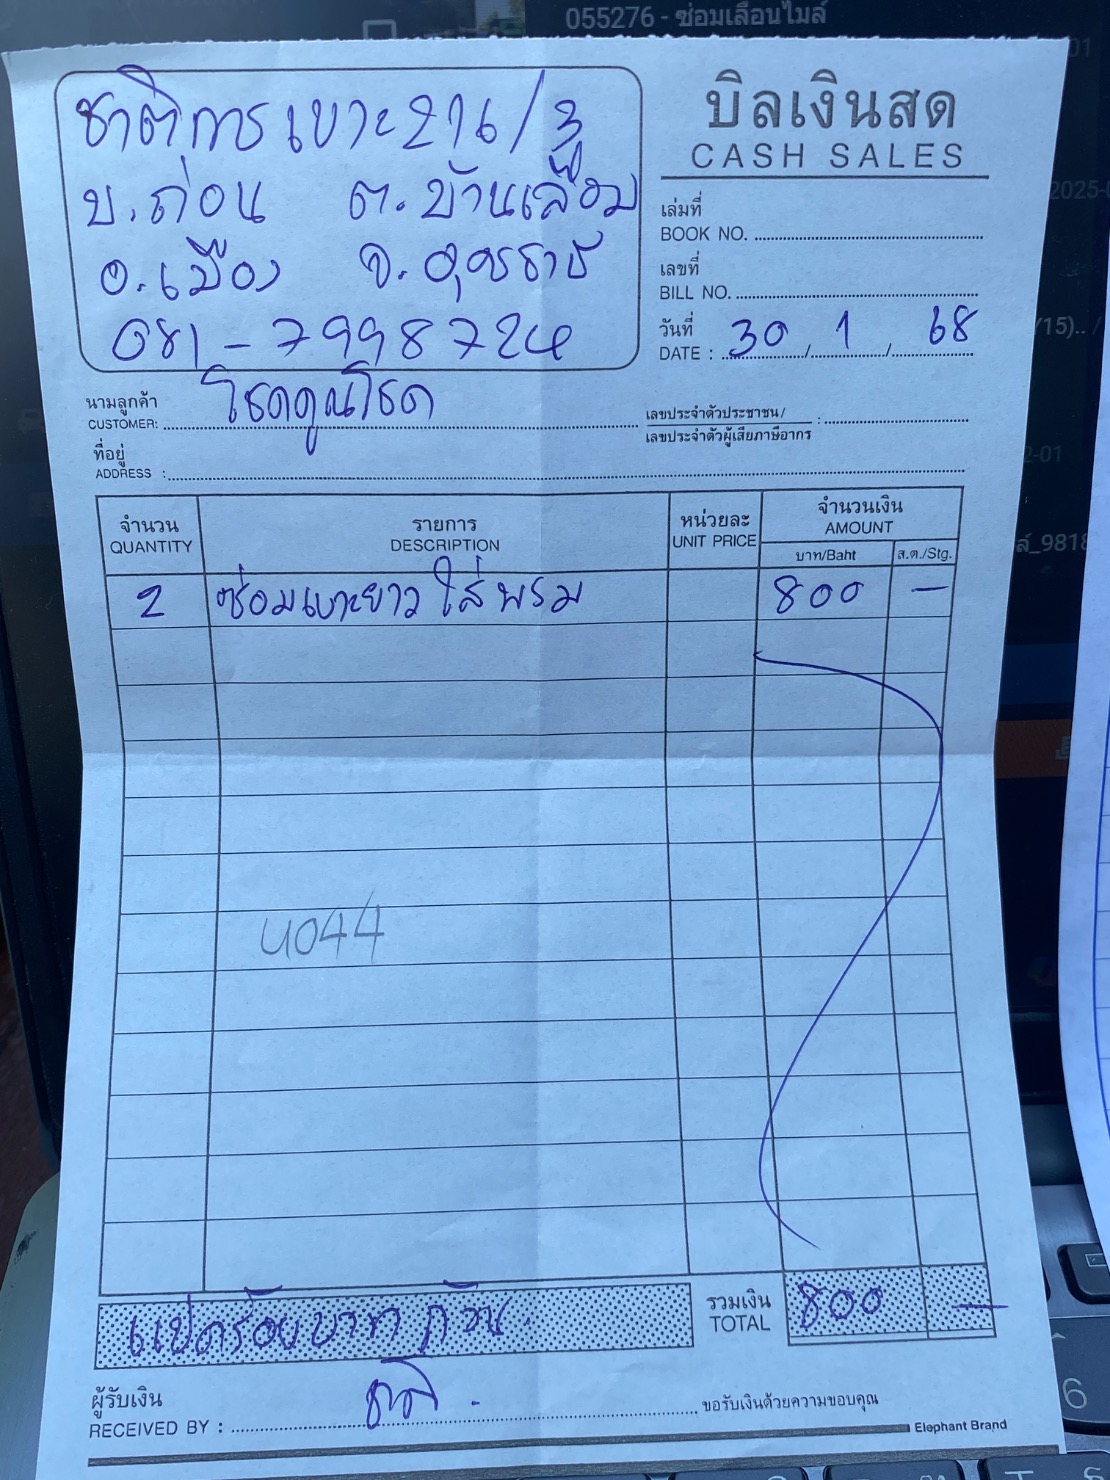 055276 - ซ่อมเลื่อนไมล์
ชาติการเบาะ 216/3
บ.ถ่อน ต.บ้านเลื่อม
อ.เมือง จ.อุดรธานี
081-7998724
บิลเงินสด
CASH SALES
เล่มที่
BOOK NO.
เลขที่
BILL NO.
วันที่
DATE : 30 / 1 / 68
นามลูกค้า
CUSTOMER: โชคคูณโชค
เลขประจำตัวประชาชน/
เลขประจำตัวผู้เสียภาษีอากร :
ที่อยู่
ADDRESS :
จำนวน รายการ หน่วยละ จำนวนเงิน
QUANTITY DESCRIPTION UNIT PRICE AMOUNT
บาท/Baht ส.ต./Stg.
2 ซ่อมเบาะยาว ใส่พรม 800 —
4044
แปดร้อยบาทถ้วน
รวมเงิน
TOTAL 800 —
ผู้รับเงิน
RECEIVED BY :
ขอรับเงินด้วยความขอบคุณ
Elephant Brand
6